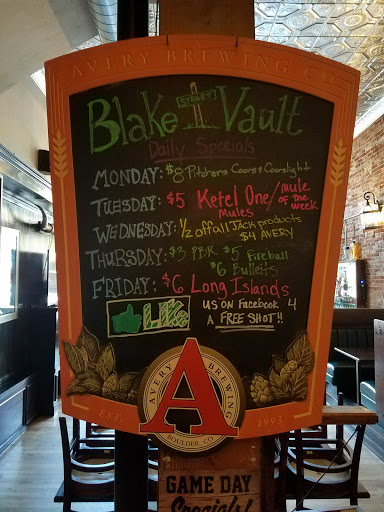 AVERY BREWING CO.
Blake [STREET] Vault
Daily Specials
MONDAY: $8 Pitchers Coors & Coorslight
TUESDAY: $5 Ketel One/mule
Mules of the week
WEDNESDAY: 1/2 off all JACK products
$4 AVERY
THURSDAY: $3 PBR $5 Fireball
$6 Bulleits
FRIDAY: $6 Long Islands
LIKE US on Facebook 4
A FREE SHOT!!
AVERY BREWING
A
BOULDER, CO
EST. 1993
GAME DAY
Specials!